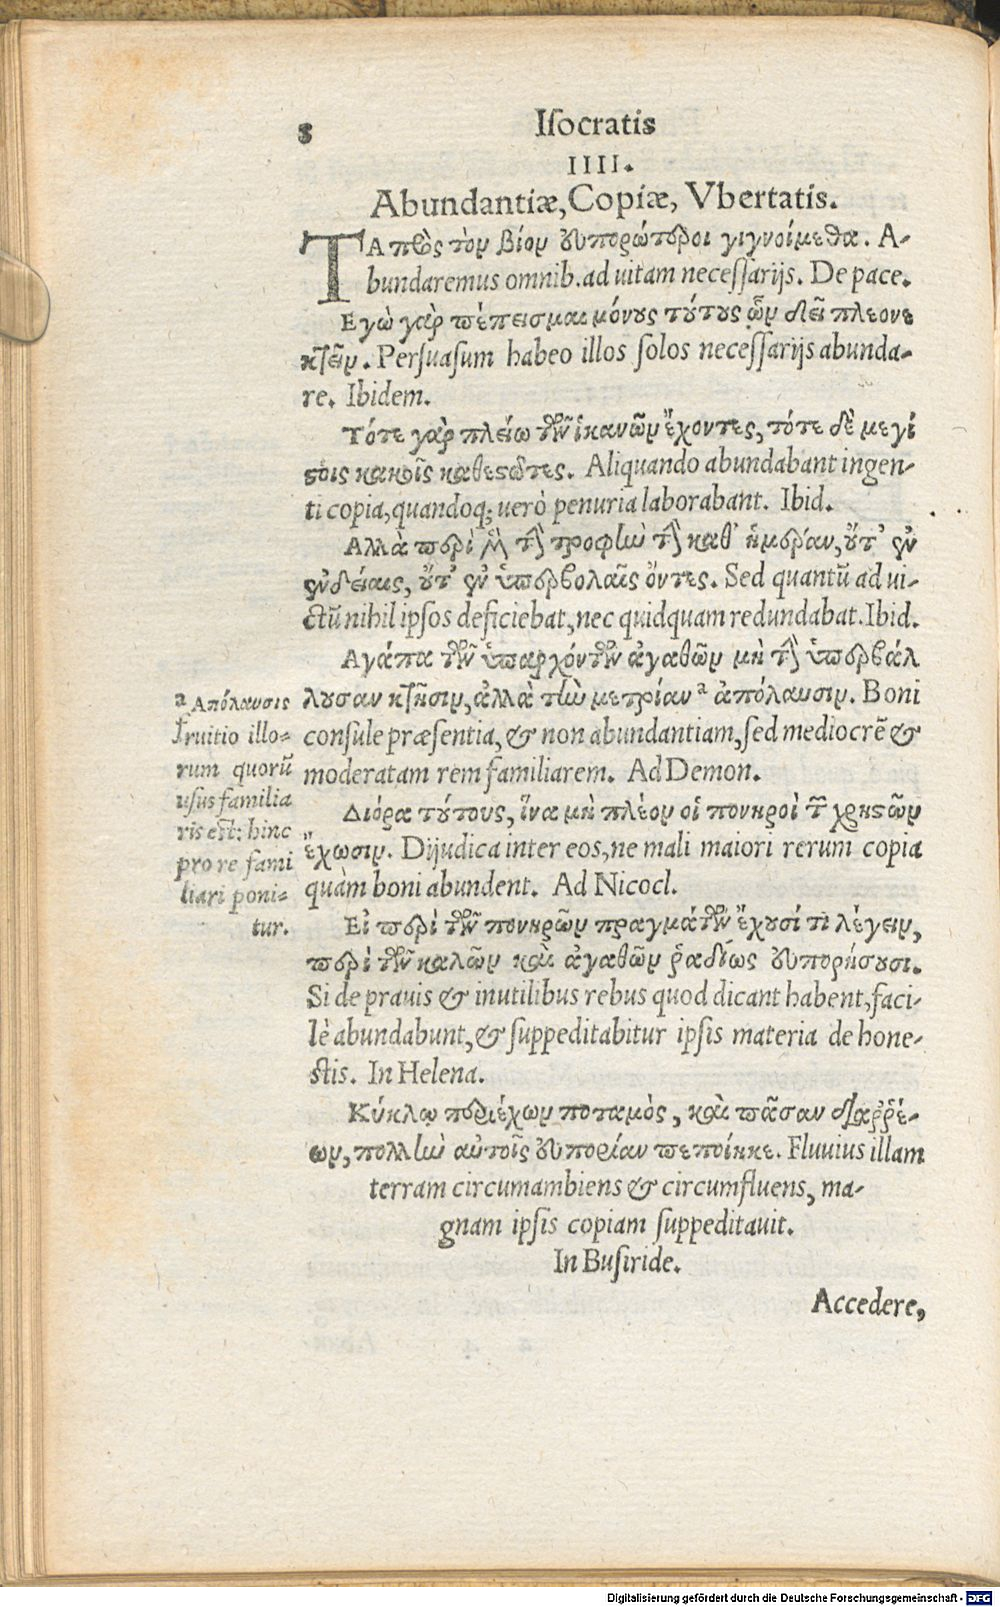 8 Iſocratis
IIII.
Abundantiæ, Copiæ, Vbertatis.
ΤΑ πρὸς τὸν βίον εὐπορώτεροι γιγνοίμεθα. A-
bundaremus omnib. ad uitam neceſſarijs. De pace.
Εγὼ γὰρ πέπεισμαι μόνους τούτους ὧν δεῖ πλεονε
κτεῖν. Perſuaſum habeo illos ſolos neceſſarijs abunda-
re. Ibidem.
Τότε γὰρ πλείω τῶν ἱκανῶν ἔχοντες, τότε δὲ μεγί
στοις κακοῖς καθεστῶτες. Aliquando abundabant ingen-
ti copia, quandoq; uerò penuria laborabant. Ibid.
Αλλὰ περὶ μὲν τὴν τροφὴν τὴν καθ᾽ ἡμέραν, οὔτ᾽ ἐν
ἐνδείαις, οὔτ᾽ ἐν ὑπερβολαῖς ὄντες. Sed quantũ ad ui-
ctũ nihil ipſos deficiebat, nec quidquam redundabat. Ibid.
Αγάπα τῶν ὑπαρχόντων ἀγαθῶν μὴ τὴν ὑπερβάλ
λουσαν κτῆσιν, ἀλλὰ τὴν μετρίαν ᵃ ἀπόλαυσιν. Boni
conſule præſentia, & non abundantiam, ſed mediocrẽ &
moderatam rem familiarem. Ad Demon.
ᵃ Απόλαυσις
fruitio illo-
rum quorũ
uſus familia
ris eſt: hinc
pro re fami
liari poni-
tur.
Διόρα τούτους, ἵνα μὴ πλέον οἱ πονηροὶ τῶν χρηστῶν
ἔχωσιν. Dijudica inter eos, ne mali maiori rerum copia
quàm boni abundent. Ad Nicocl.
Εἰ περὶ τῶν πονηρῶν πραγμάτων ἔχουσί τι λέγειν,
περὶ τῶν καλῶν καὶ ἀγαθῶν ῥαδίως εὐπορήσουσι.
Si de prauis & inutilibus rebus quod dicant habent, faci-
lè abundabunt, & ſuppeditabitur ipſis materia de hone-
ſtis. In Helena.
Κύκλῳ περιέχων ποταμὸς, καὶ πᾶσαν διαῤῥέ-
ων, πολλὴν αὐτοῖς εὐπορίαν πεποίηκε. Fluuius illam
terram circumambiens & circumfluens, ma-
gnam ipſis copiam ſuppeditauit.
In Buſiride.
Accedere,
Digitalisierung gefördert durch die Deutsche Forschungsgemeinschaft - DFG